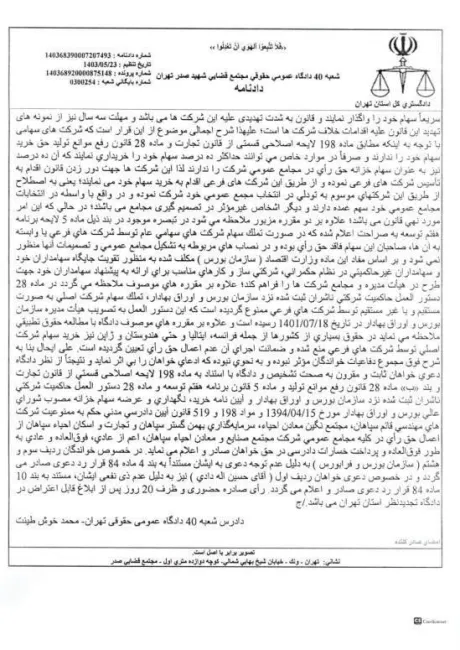 «فَلا تَتَّبِعُوا الْهَوى أَنْ تَعْدِلُوا»
شماره دادنامه : 140368390007207493
تاریخ تنظیم : 1403/05/23
شماره پرونده : 140368920000875148
شماره بایگانی شعبه : 0300254
شعبه 40 دادگاه عمومی حقوقی مجتمع قضایی شهید صدر تهران
دادنامه
دادگستری کل استان تهران
سریعاً سهام خود را واگذار نمایند و قانون به شدت تهدیدی علیه این شرکت ها می باشد و مهلت سه سال نیز از نمونه های
تهدید این قانون علیه اقدامات خلاف شرکت ها است؛ علیهذا شرح اجمالی موضوع از این قرار است که شرکت های سهامی
با توجه به اینکه مطابق ماده 198 لایحه اصلاحی قسمتی از قانون تجارت و ماده 28 قانون رفع موانع تولید حق خرید
سهام خود را ندارند و صرفاً در موارد خاص می توانند حداکثر ده درصد سهام خود را خریداری نمایند که آن ده درصد
نیز به عنوان سهام خزانه حق رأی در مجامع عمومی شرکت را ندارند لذا این شرکت ها جهت دور زدن قانون اقدام به
تأسیس شرکت های فرعی نموده و از طریق این شرکت های فرعی اقدام به خرید سهام خود می نمایند؛ یعنی به اصطلاح
از طریق این شرکتهای موسوم به تودلی در انتخاب مجمع عمومی خود شرکت نموده و در واقع با واسطه در انتخابات
مجامع عمومی خود سهم عمده دارند و دیگر اشخاص غیرمؤثر در تصمیم گیری مجامع می باشند؛ در حالی که این امر
مورد نهی قانون می باشد؛ علاوه بر دو مقرره مزبور ملاحظه می شود در تبصره موجود در بند ذیل ماده 5 لایحه برنامه
هفتم توسعه به صراحت اعلام شده که در صورت تملک سهام شرکت های سهامی عام توسط شرکت های فرعی یا وابسته
به آن ها، صاحبان این سهام فاقد حق رأی بوده و در نصاب های مربوطه به تشکیل مجامع عمومی و تصمیمات آنها منظور
نمی شود و بر اساس مفاد این ماده وزارت اقتصاد ( سازمان بورس ) مکلف شده به منظور تقویت جایگاه سهامداران خرد
و سهامداران غیرحاکمیتی در نظام حکمرانی، شرکتی ساز و کارهای مناسب برای ارائه به پیشنهاد سهامداران خود جهت
طرح در هیأت مدیره و مجامع شرکت ها را فراهم کند؛ علاوه بر مقرره های موصوف ملاحظه می گردد در ماده 28
دستور العمل حاکمیت شرکتی ناشران ثبت شده نزد سازمان بورس و اوراق بهادار، تملک سهام شرکت اصلی به صورت
مستقیم و یا غیر مستقیم توسط شرکت های فرعی ممنوع گردیده است که این دستور العمل به تصویب هیأت مدیره سازمان
بورس و اوراق بهادار در تاریخ 1401/07/18 رسیده است و علاوه بر مقرره های موصوف دادگاه با مطالعه حقوق تطبیقی
ملاحظه می نماید در حقوق بسیاری از کشورها از جمله فرانسه، ایتالیا و حتی هندوستان و ژاپن نیز خرید سهام شرکت
اصلی توسط شرکت های فرعی منع شده و ضمانت اجرای آن عدم اعمال حق رأی تعیین گردیده است. علی ایحال بنا به
شرح فوق مجموع دفاعیات خواندگان مؤثر نبوده و به نحوی نبوده که ادعای خواهان را بی اثر نماید و نتیجتاً از نظر دادگاه
دعوی خواهان ثابت و مقرون به صحت تشخیص و دادگاه با استناد به ماده 198 لایحه اصلاحی قسمتی از قانون تجارت
و بند «ب» ماده 28 قانون رفع موانع تولید و ماده 5 قانون برنامه هفتم توسعه و ماده 28 دستور العمل حاکمیت شرکتی
ناشران ثبت شده نزد سازمان بورس و اوراق بهادار و آیین نامه خرید، نگهداری و عرضه سهام خزانه مصوب شورای
عالی بورس و اوراق بهادار مورخ 1394/04/15 و مواد 198 و 519 قانون آیین دادرسی مدنی حکم به ممنوعیت شرکت
های مهندسی قائم سپاهان، مجتمع نگین معادن احیاء، سرمایه‌گذاری بهمن گستر سپاهان و تجارت و اسکان احیاء سپاهان از
اعمال حق رأی در کلیه مجامع عمومی شرکت مجتمع صنایع و معادن احیاء سپاهان، اعم از عادی، فوق‌العاده و عادی به
طور فوق‌العاده و پرداخت خسارات دادرسی در حق خواهان صادر و اعلام می نماید. در خصوص خواندگان ردیف سوم و
هشتم ( سازمان بورس و فرابورس ) به دلیل عدم توجه دعوی به ایشان مستنداً به بند 4 ماده 84 قرار رد دعوی صادر می
گردد و در خصوص دعوی خواهان ردیف اول ( آقای حسین اله دادی ) نیز به دلیل عدم ذی نفعی ایشان، مستند به بند 10
ماده 84 قرار رد دعوی صادر و اعلام می گردد. رأی صادره حضوری و ظرف 20 روز پس از ابلاغ قابل اعتراض در
دادگاه تجدیدنظر استان تهران می باشد./ج
دادرس شعبه 40 دادگاه عمومی حقوقی تهران- محمد خوش طینت
امضای صادر کننده
تصویر برابر با اصل است.
نشانی: تهران - ونک - خیابان شیخ بهایی شمالی- کوچه دوازده متری اول - مجتمع قضایی صدر
CS CamScanner